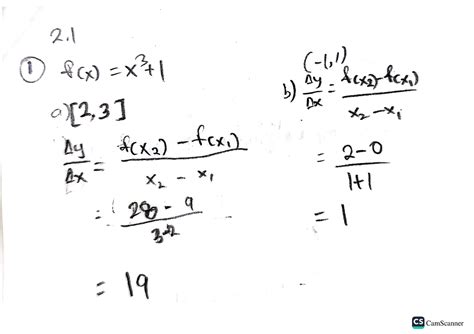 2.1
① f(x) = x³+1
a) [2,3]
Δy/Δx = f(x₂) - f(x₁) / x₂ - x₁
= 28 - 9 / 3-2
= 19
(-1,1)
b) Δy/Δx = f(x₂)-f(x₁) / x₂-x₁
= 2-0 / 1+1
= 1
CS CamScanner